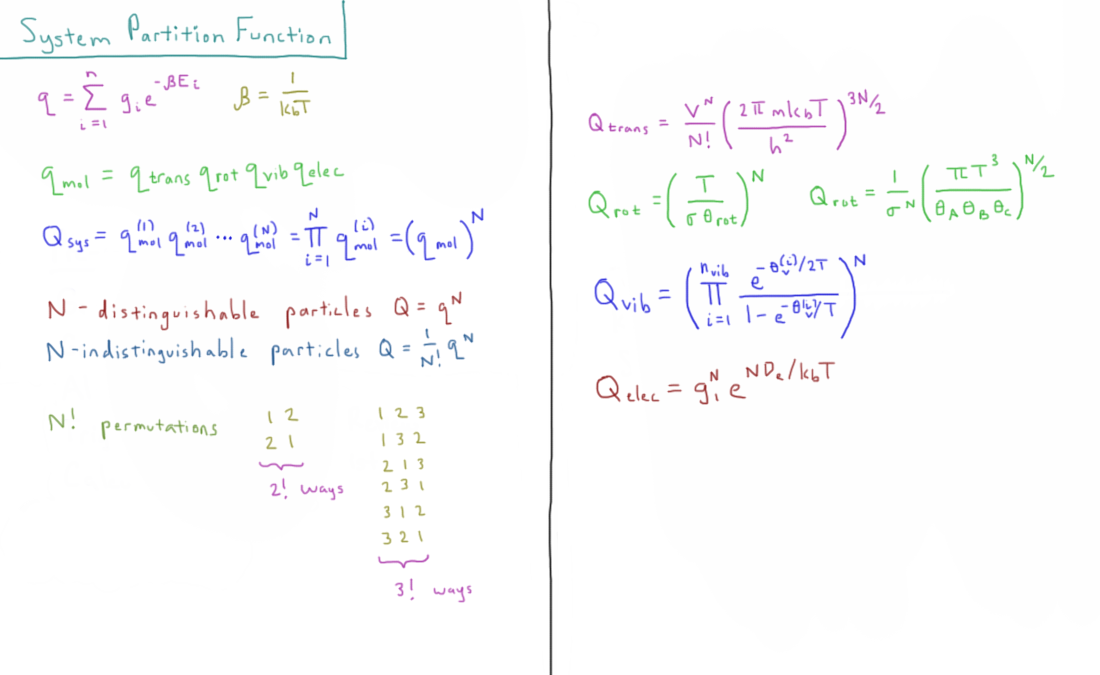 System Partition Function
q = Σ_{i=1}^{n} g_i e^{-βE_i}   β = 1/(k_bT)
q_mol = q_trans q_rot q_vib q_elec
Q_sys = q_mol^{(1)} q_mol^{(2)} ... q_mol^{(N)} = Π_{i=1}^{N} q_mol^{(i)} = (q_mol)^N
N - distinguishable particles Q = q^N
N-indistinguishable particles Q = 1/N! q^N
N! permutations
1 2
2 1
2! ways
1 2 3
1 3 2
2 1 3
2 3 1
3 1 2
3 2 1
3! ways
Q_trans = V^N/N! (2π mk_bT / h^2)^{3N/2}
Q_rot = (T / σ θ_rot)^N   Q_rot = 1/σ^N (πT^3 / θ_A θ_B θ_C)^{N/2}
Q_vib = (Π_{i=1}^{n_vib} e^{-θ_v^{(i)}/2T} / 1 - e^{-θ_v^{(i)}/T})^N
Q_elec = g_1^N e^{ND_e/k_bT}